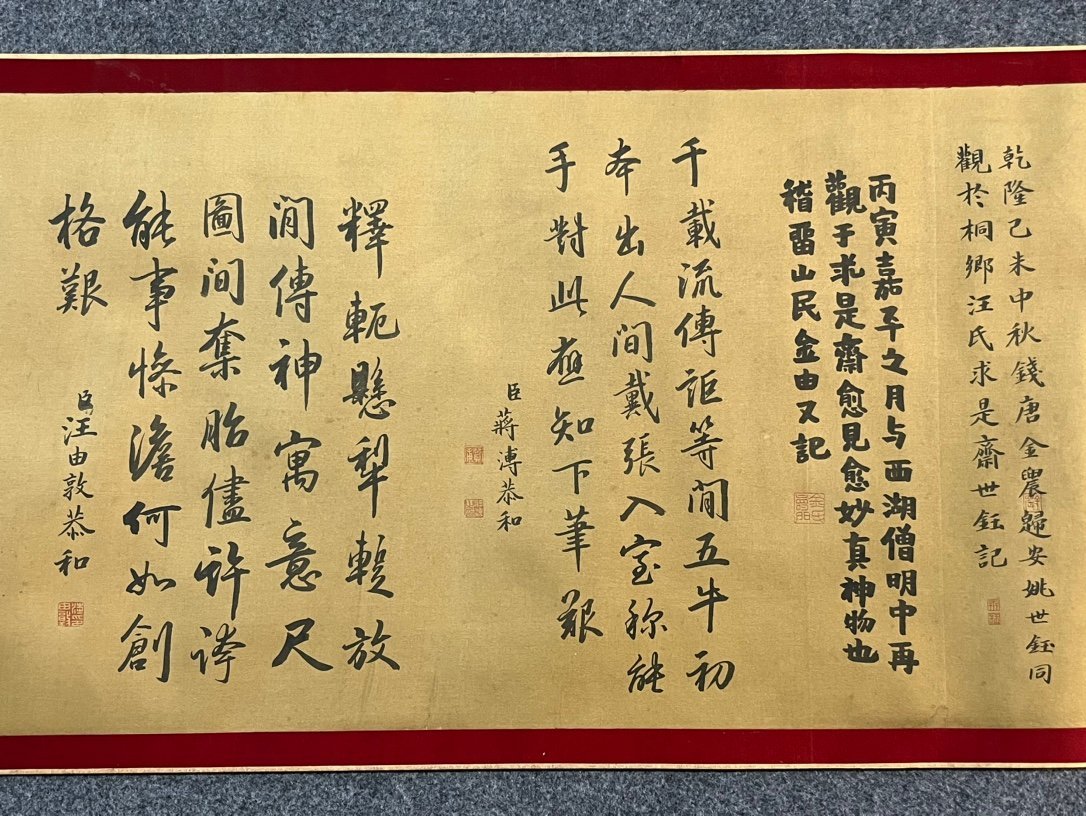 乾隆己未中秋錢唐金農歸安姚世鈺同
觀於桐鄉汪氏求是齋世鈺記
丙寅嘉平之月与西湖僧明中再
觀于求是齋愈見愈妙真神物也
稽留山民金由又記
千載流傳詎等閒五牛初
本出人間戴張入室稱能
手對此應知下筆艱
臣蔣溥恭和
釋軛懸犂暫放
閒傳神寓意尺
圖間奪胎儘許誇
能事慘澹何如創
格艱
臣汪由敦恭和